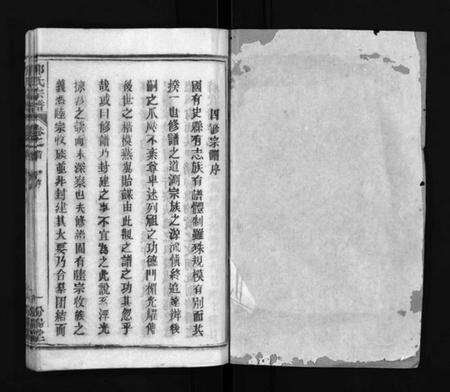 四修宗譜序
國有史縣有志族有譜體制雖殊規模有別而其
揆一也修譜之道溯宗族之源流慎終追遠辨後
嗣之爪瓞不棄尊卑述列祖之功德門楣光耀傳
後世之楷模燕翼貽謀由此觀之譜之功其忽乎
哉或曰修譜乃封建之事不宜為之此說乃浮光
掠影之談而未深察也夫修譜固有睦宗收族之
義然睦宗收族並非封建其大要乃合羣團結而